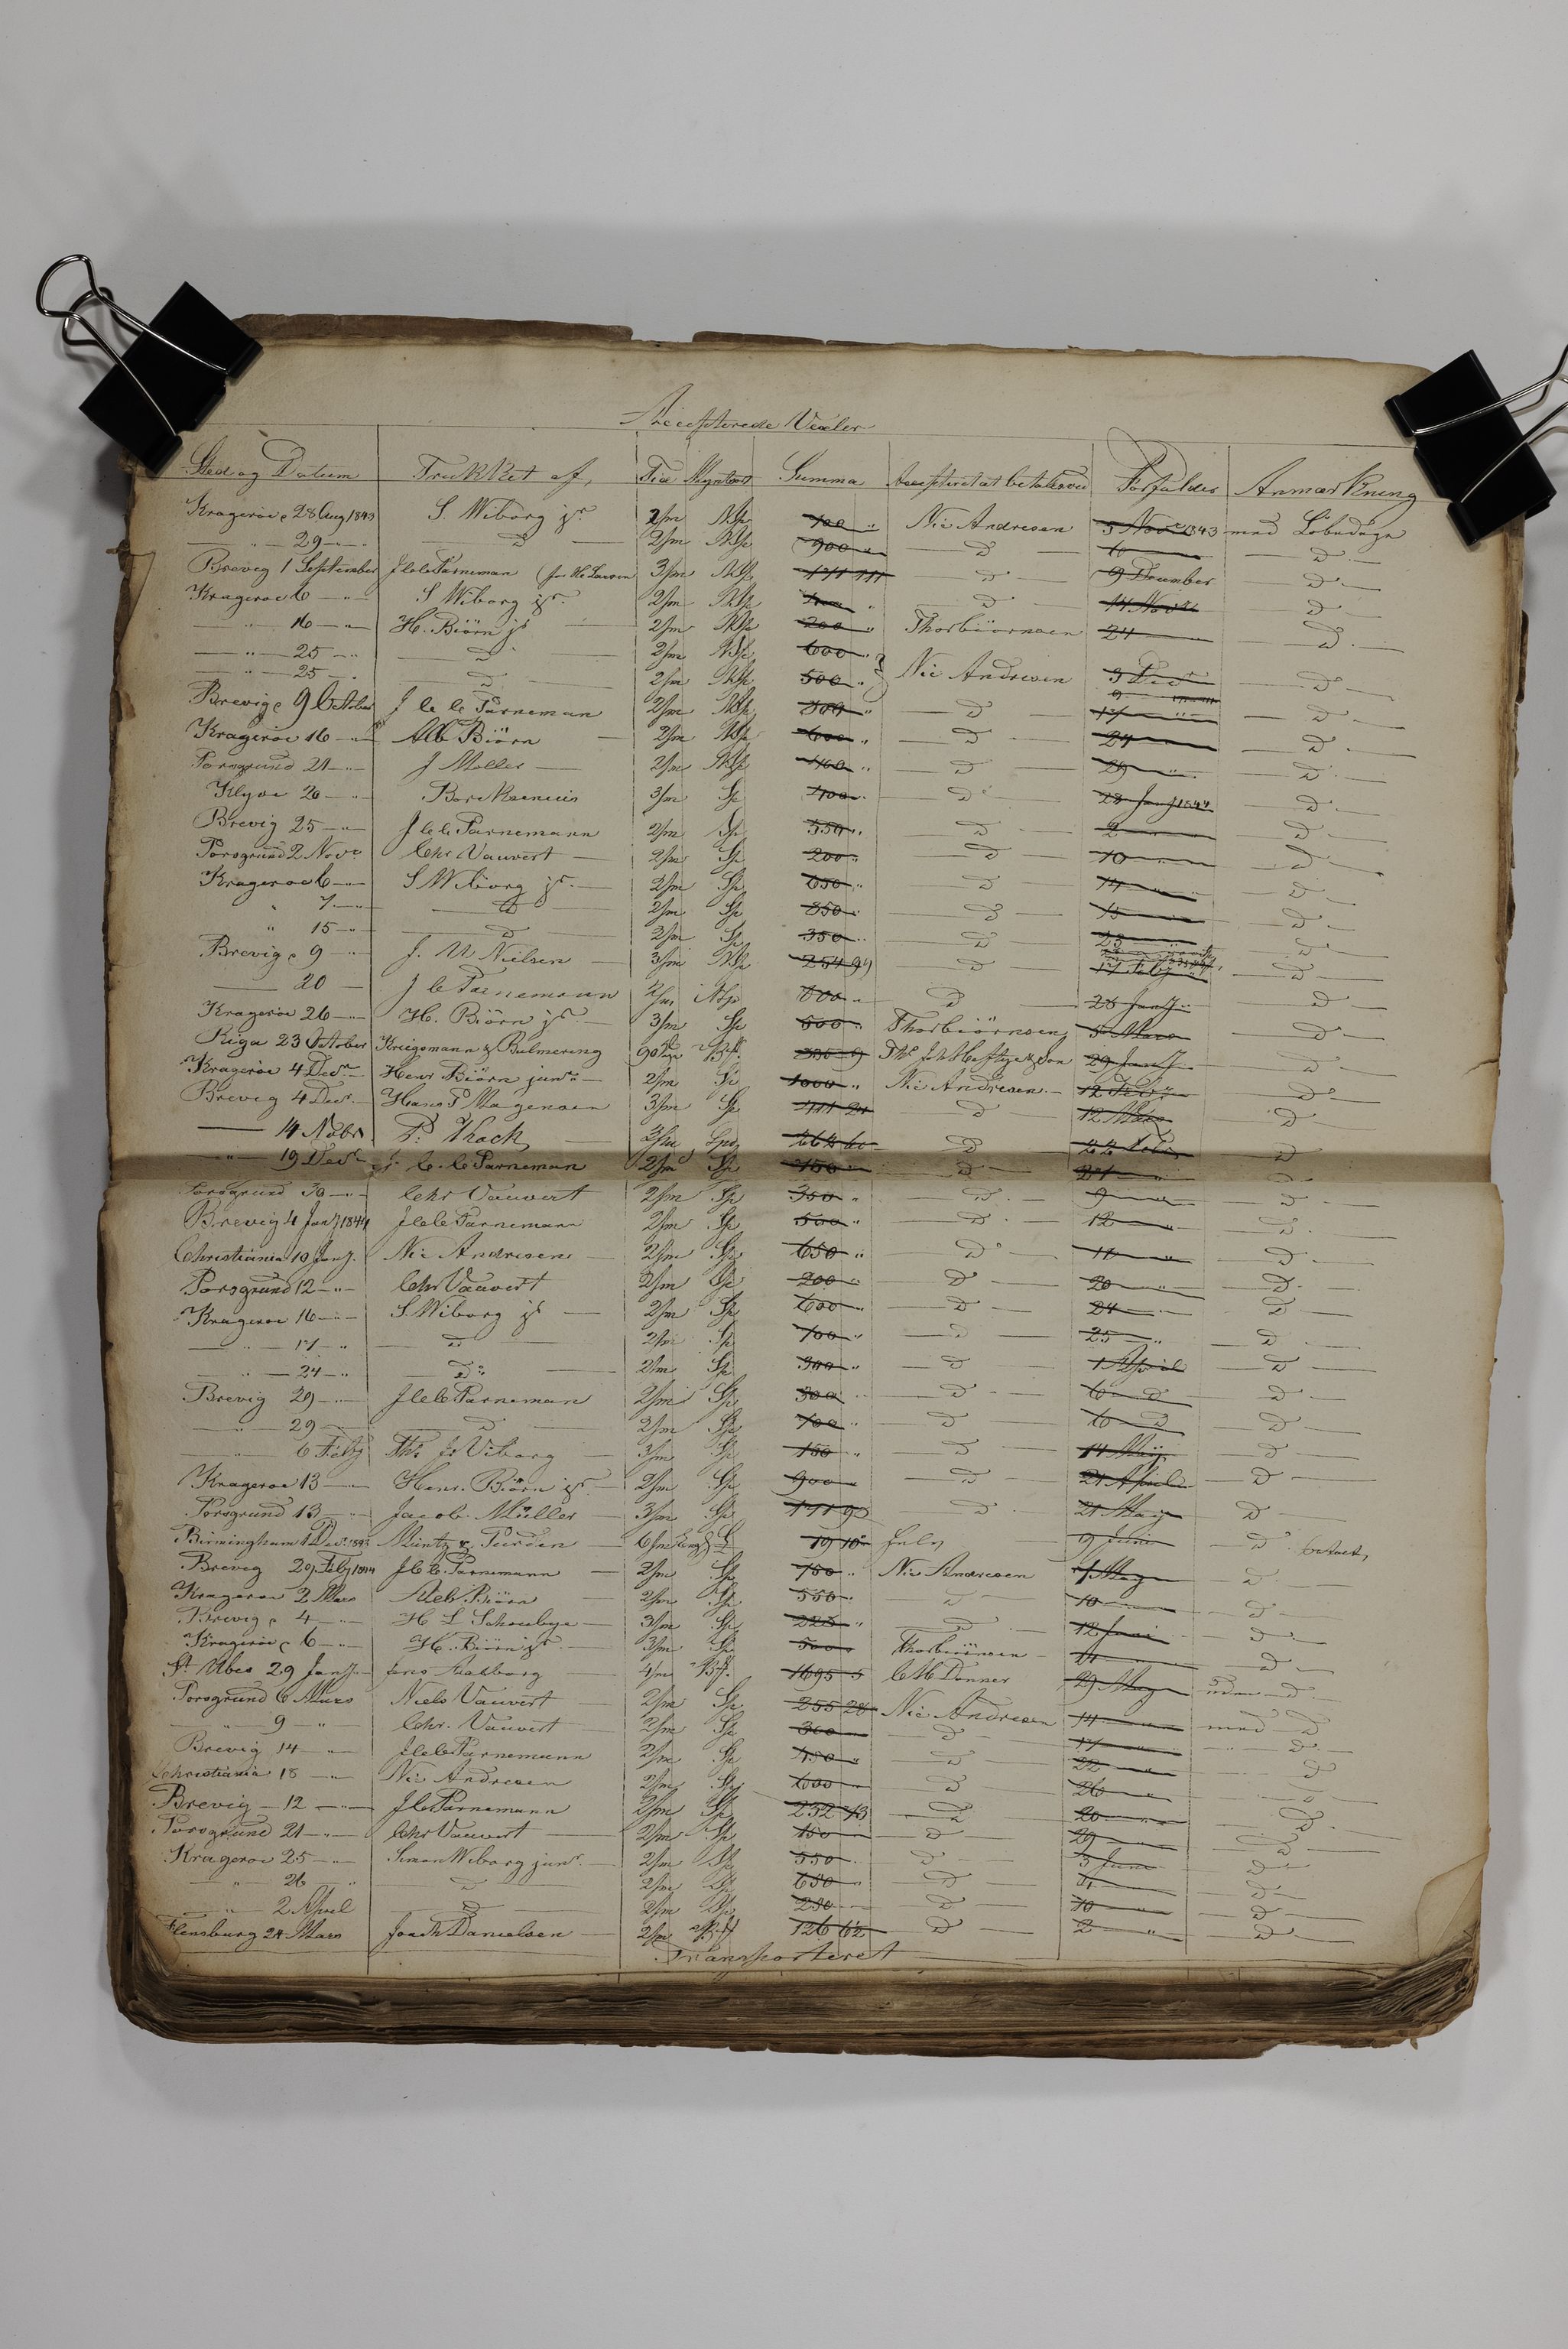 Accepterede Vexler
Sted og Datum Trukket af, Tid Myntsort Summa Accepteret at betales ved Forfalder Anmærkning
Krageröe 28 Aug 1843 S. Wiborg jr. 2/m NSp 700 " Nic Andresen 5 Novr 1843 med Löbedage
— " — 29 — " D 2/m NSp 900 " D D
Brevig 1 September J C C Parneman 3/m NSp D 9 December D
Krageröe 6 — " S Wiborg jr. 2/m NSp D 14 Novr D
— " — 16 — " H. Biörn jr 2/m NSp 200 " Thorbiörnsen 24 D
— " — 25 — " D 2/m NSp 600 "
— " — 25 — " D 2/m NSp 500 " Nic Andresen 3 Decr D
Brevig 9 October J C C Parneman 2/m NSp 300 " D 17 " D
Krageröe 16 — " Alb Biörn 2/m NSp 600 " D 24 D
Porsgrund 21 — " J Möller 2/m NSp D 29 " D
Klyve 20 — " 3/m Sp D 28 Jany 1844 D
Brevig 25 — " J C C Parnemann 2/m Sp 550 " D 2 D
Porsgrund 2 Novr Chr Vauvert 2/m Sp 200 " D 10 D
Krageröe 6 — " S Wiborg jr. 2/m Sp 650 " D 14 " D
" 7 — " D 2/m Sp 850 " D 15 D
" 15 — " D 2/m Sp 350 " D 23 D
Brevig 9 — " J. N Nielsen 3/m NSp 254 99 D 17 Feby D
— 20 — J C Parnemann 2/m NSp 600 " D 28 Jany D
Krageröe 26 — " H. Biörn jr. 3/m Sp 500 " Thorbiörnsen 5 Mars D
Riga 23 October Kriegsmann & Bulmering 90 Dge Ths. Joh Heftye & Son 29 Jany D
Krageröe 4 Decr Henr Biörn junr 2/m Sp 1000 " Nic Andresen 12 Feby D
Brevig 4 Decr. Hans P Magensen 3/m Sp D 12 Mars D
— 14 Nobr P. 3/m Spd 264 60 D 22 Feby D
— " — 19 Decr J. C. C Parneman 2/m Sp 150 " D D
Porsgrund 30 — " Chr Vauvert 2/m Sp 350 " D 9 D
Brevig 4 Jany 1844 J C C Parnemann 2/m Sp 500 " D 12 D
Christiania 10 Jany. Nic Andresen 2/m Sp 650 " D D
Porsgrund 12 — " Chr Vauvert 2/m Sp 200 " D 20 D
Krageröe 16 — " S Wiborg jr 2/m Sp 600 " D 24 D
— " — 17 — " D 2/m Sp 700 " D 25 " D
— " — 24 — " D 2/m Sp 300 " D 1 April D
Brevig 29 — " J C C Parneman 2/m Sp 300 D 6 D D
— " — 29 — D 2/m Sp 700 " D 6 D D
" 6 Feby Ths Js Viborg 3/m Sp 160 " D 14 May D
Krageröe 13 — " Henr. Biörn jr 2/m Sp 900 " D 21 April D
Porsgrund 13 — " Jacob. Müller 3/m Sp D 21 May D
Birmingham 1 Decr 1843 Mintz & 6/m £ 19 10 12 Juni D betalt
Brevig 29 Feby 1844 J C C Parnemann 2/m Sp 750 " Nic Andresen May D
Krageröe 2 Mars Alb Biörn 2/m Sp 550 " D 10 D
Brevig 4 — " H L Schoubye 3/m Sp 225 " D 12 Juni D
Krageröe 6 — " H. Biörn jr 3/m Sp 500 Thorbiörnsen D
St Ubes 29 Jany. Jens Aalborg 4/m 1695 5 C H Donner 29 May uden d
Porsgrund 6 Mars Niels Vauvert 2/m Sp 255 28 Nic Andresen 14 med D
— " — 9 — " Chr. Vauvert 2/m Sp 300 D 17 " D
Brevig 14 — " J C C Parnemann 2/m Sp 450 " D 22 D
Christiania 18 — " Nic Andresen 2/m Sp 600 D 26 D
Brevig — 12 — " J C Parnemann 2/m Sp 232 73 D 20 D
Porsgrund 21 — " Chr Vauvert 2/m Sp 150 D 29 D
Krageröe 25 — " Simon Wiborg junr. 2/m Sp 550 D 3 Juni D
— " — 26 " D 2/m Sp 650 D D
— " — 2 April D 2/m Sp 250 D 10 D
Flensburg 24 Mars Joach Danielsen 2/m 126 62 D 2 " D
Transporteret